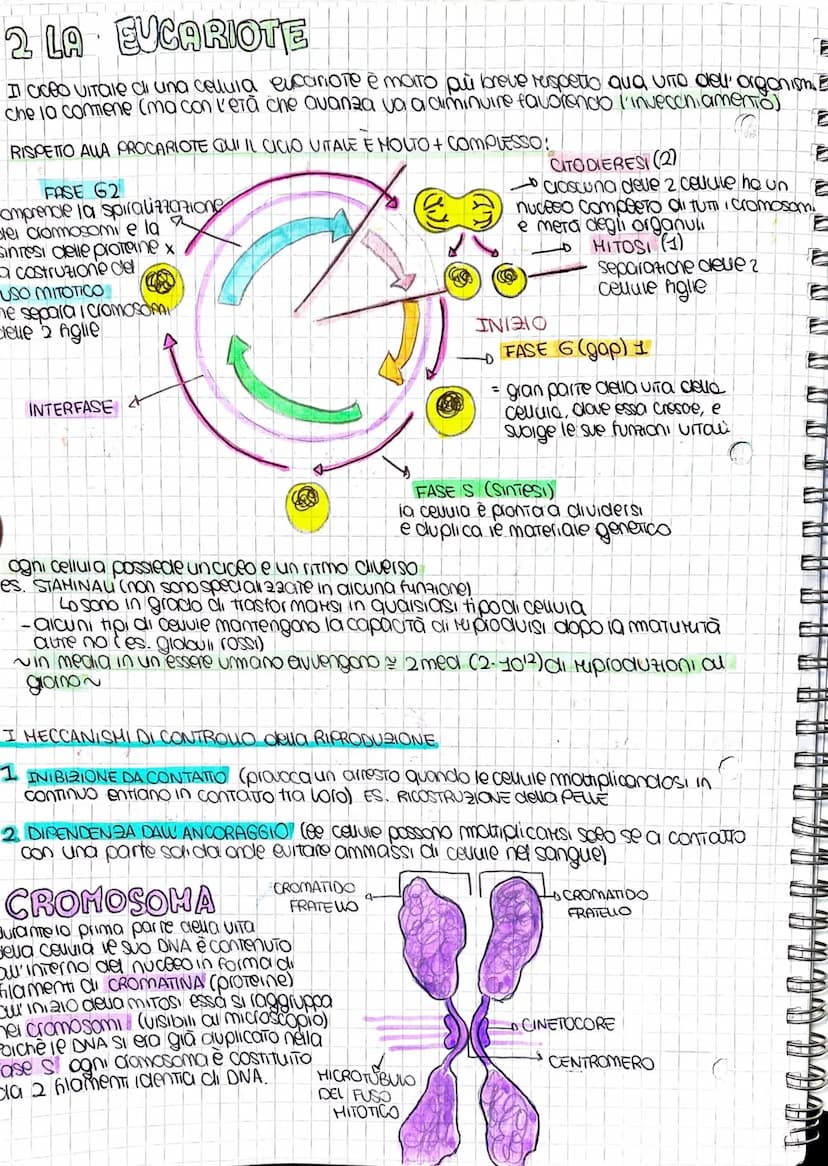 2 LA EUCARIOTE
Il ciclo vitale di una cellula eucariote è molto più breve rispetto alla vita dell'organism
che la contiene (ma con l'età che avanza va a diminuire favorendo l'invecchiamento)
RISPETTO ALLA PROCARIOTE QUI IL CICLO VITALE È MOLTO + COMPLESSO:
FASE G2
omprende la spiralizzazione
dei cromosomi e la
sintesi delle proteine x
a costruzione del
USO MITOTICO
he separa i cromosomi
delle 2 figlie
CITODIERESI (2)
ciascuna delle 2 cellule ha un
nucleo completo di tutti i cromosomi
e metà degli organuli
MITOSI (1)
separazione delle 2
cellule figlie
INIZIO
FASE G (gap) 1
= gran parte della vita della
cellula, dove essa cresce, e
svolge le sue funzioni vitali
INTERFASE
FASE S (sintesi)
la cellula è pronta a dividersi
e duplica il materiale genetico
ogni cellula possiede un ciclo e un ritmo diverso
es. STAMINALI (non sono specializzate in alcuna funzione)
Lo sono in grado di trasformarsi in qualsiasi tipo di cellula
- alcuni tipi di cellule mantengono la capacità di riprodursi dopo la maturità
altre no (es. globuli rossi)
~ in media in un essere umano avvengono ≅ 2 mld (2·10¹²) di riproduzioni al
giorno ~
I MECCANISMI DI CONTROLLO della RIPRODUZIONE
1 INIBIZIONE DA CONTATTO (provoca un arresto quando le cellule moltiplicandosi in
continuo entrano in contatto tra loro) ES. RICOSTRUZIONE della PELLE
2 DIPENDENZA DALL'ANCORAGGIO (le cellule possono moltiplicarsi solo se a contatto
con una parte solida onde evitare ammassi di cellule nel sangue)
CROMOSOMA
durante la prima parte della vita
della cellula il suo DNA è contenuto
all'interno del nucleo in forma di
filamenti di CROMATINA (proteine)
all'inizio della mitosi essa si raggruppa
nei cromosomi (visibili al microscopio)
poichè il DNA si era già duplicato nella
fase S' ogni cromosoma è costituito
da 2 filamenti identici di DNA.
CROMATIDO
FRATELLO
CROMATIDO
FRATELLO
CINETOCORE
CENTROMERO
MICROTUBULO
DEL FUSO
MITOTICO